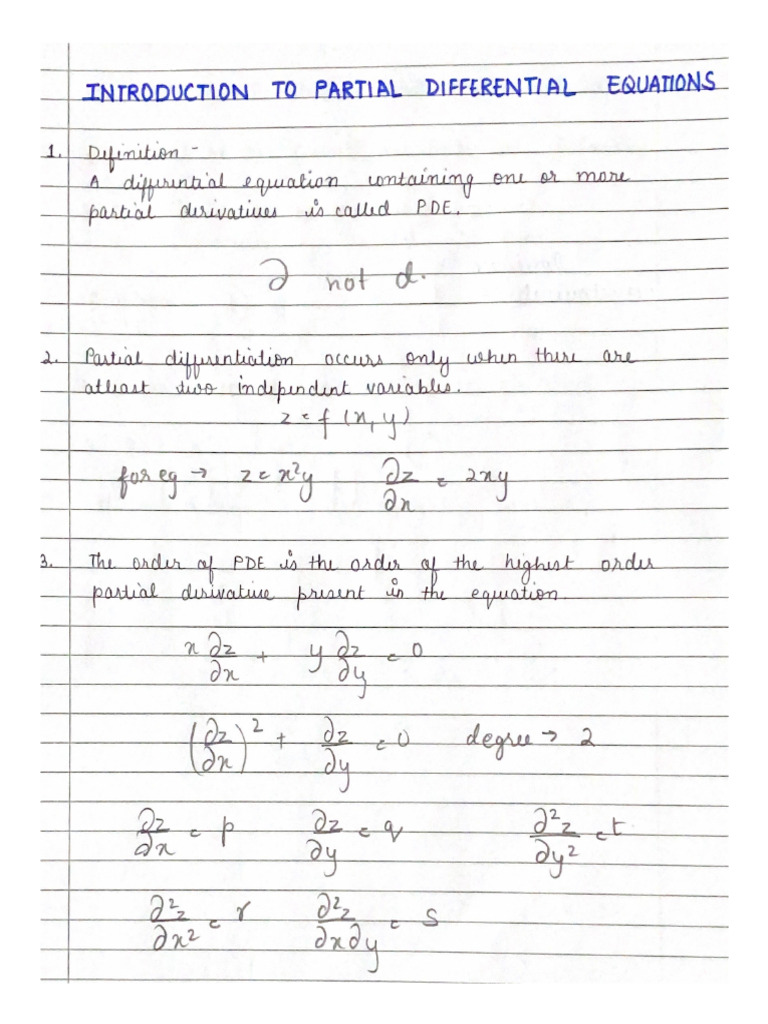 INTRODUCTION TO PARTIAL DIFFERENTIAL EQUATIONS
1. Definition -
A differential equation containing one or more
partial derivatives is called PDE.
∂ not d.
2. Partial differentiation occurs only when there are
atleast two independent variables.
z = f (x, y)
for eg → z = x²y ∂z/∂x = 2xy
3. The order of PDE is the order of the highest order
partial derivative present in the equation.
x ∂z/∂x + y ∂z/∂y = 0
(∂z/∂x)² + ∂z/∂y = 0 degree → 2
∂z/∂x = p ∂z/∂y = q ∂²z/∂y² = t
∂²z/∂x² = r ∂²z/∂x∂y = s